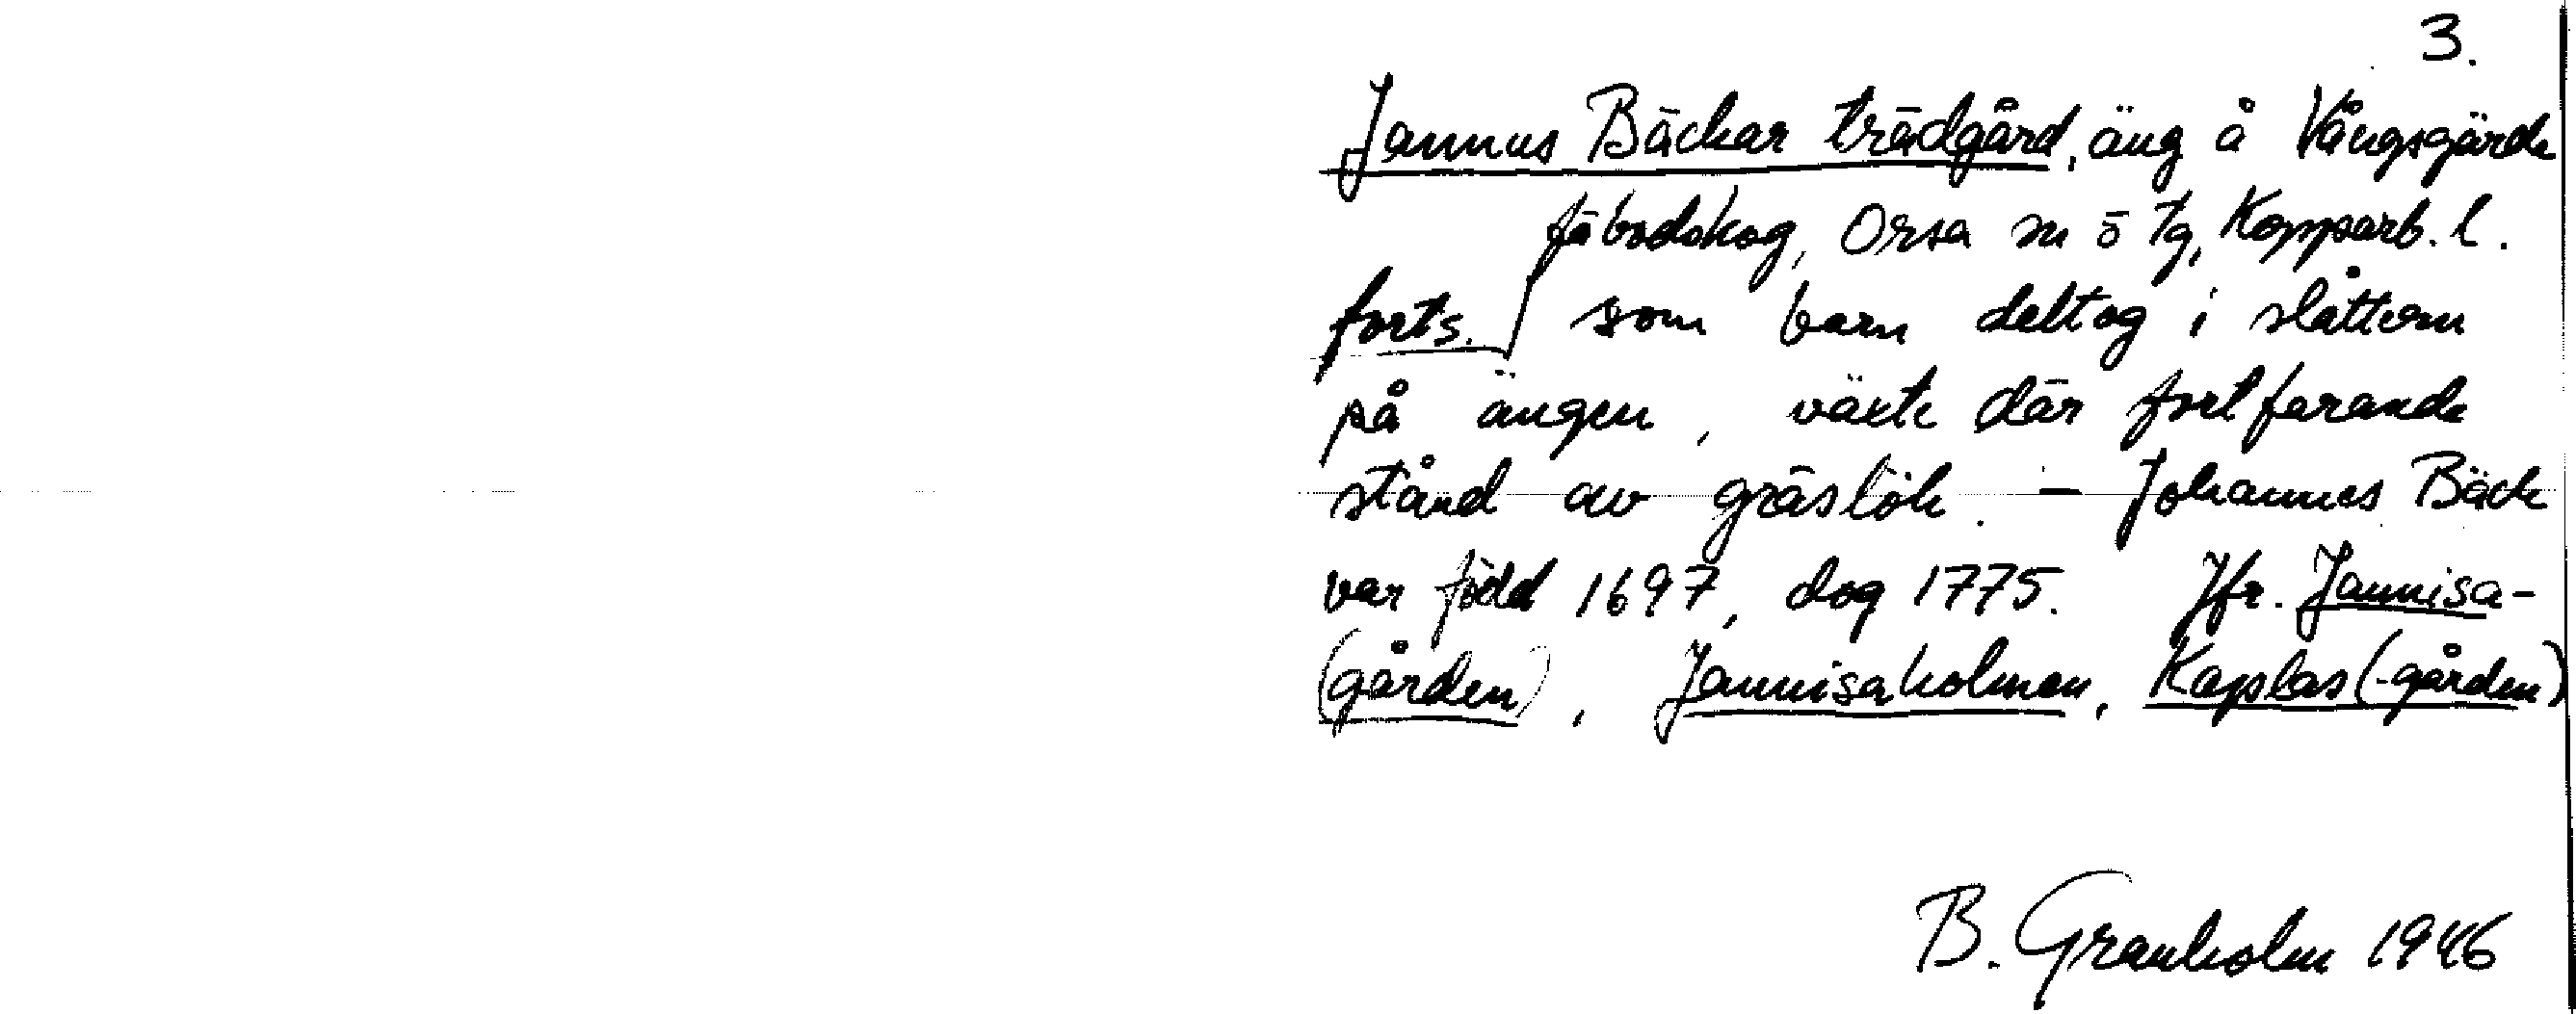 3.
Jannus Bäckar trädgård, äng å Vångsgärde
fäbodskog, Orsa sn ö tg, Kopparb. l.
forts. / som barn deltog i slåttern
på ängen, växte där fortfarande
stånd av gräslök. – Johannes Bäck
var född 1697, dog 1775. Jfr. Jannisa-
(gården), Jannisaholmen, Kaplas (-gården)
B. Granholm 1946